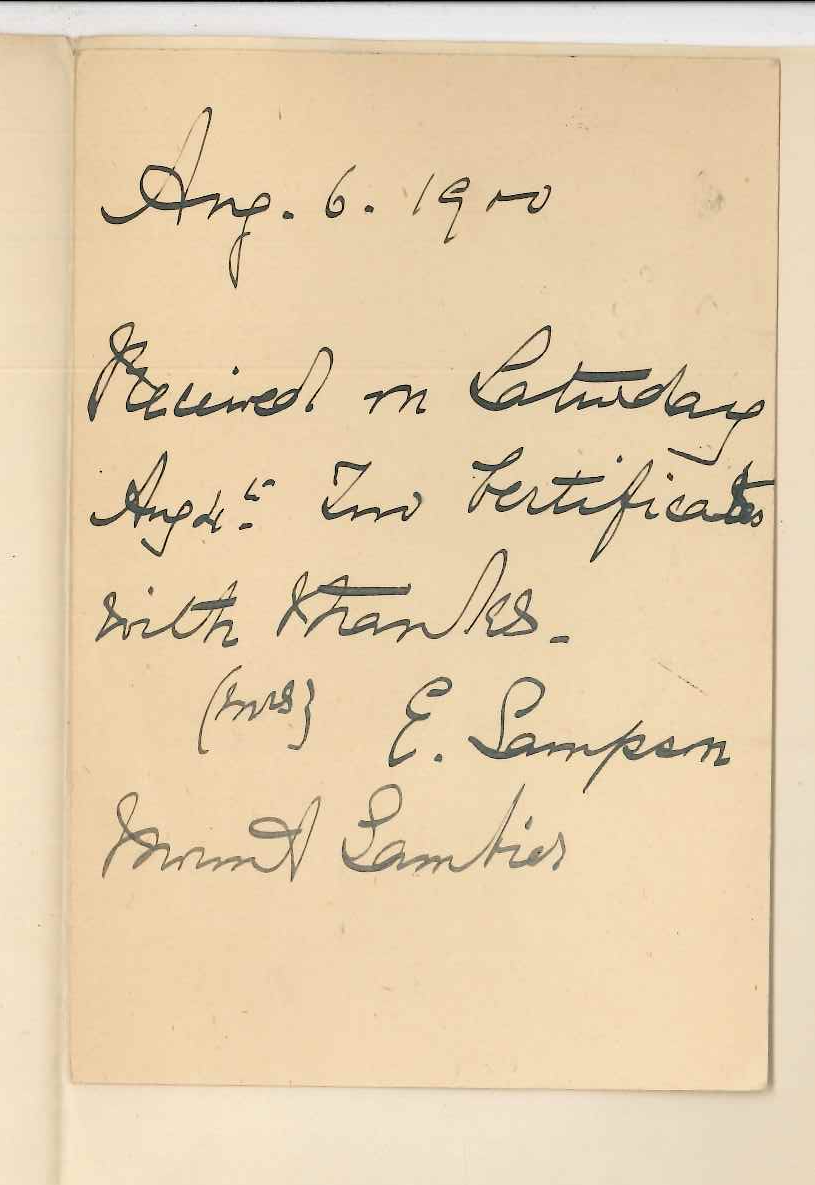 Aug. 6. 1900
Received on Saturday
Aug 4th Two Certificates
with thanks.
(Mrs) E. Sampson
Mount Gambier